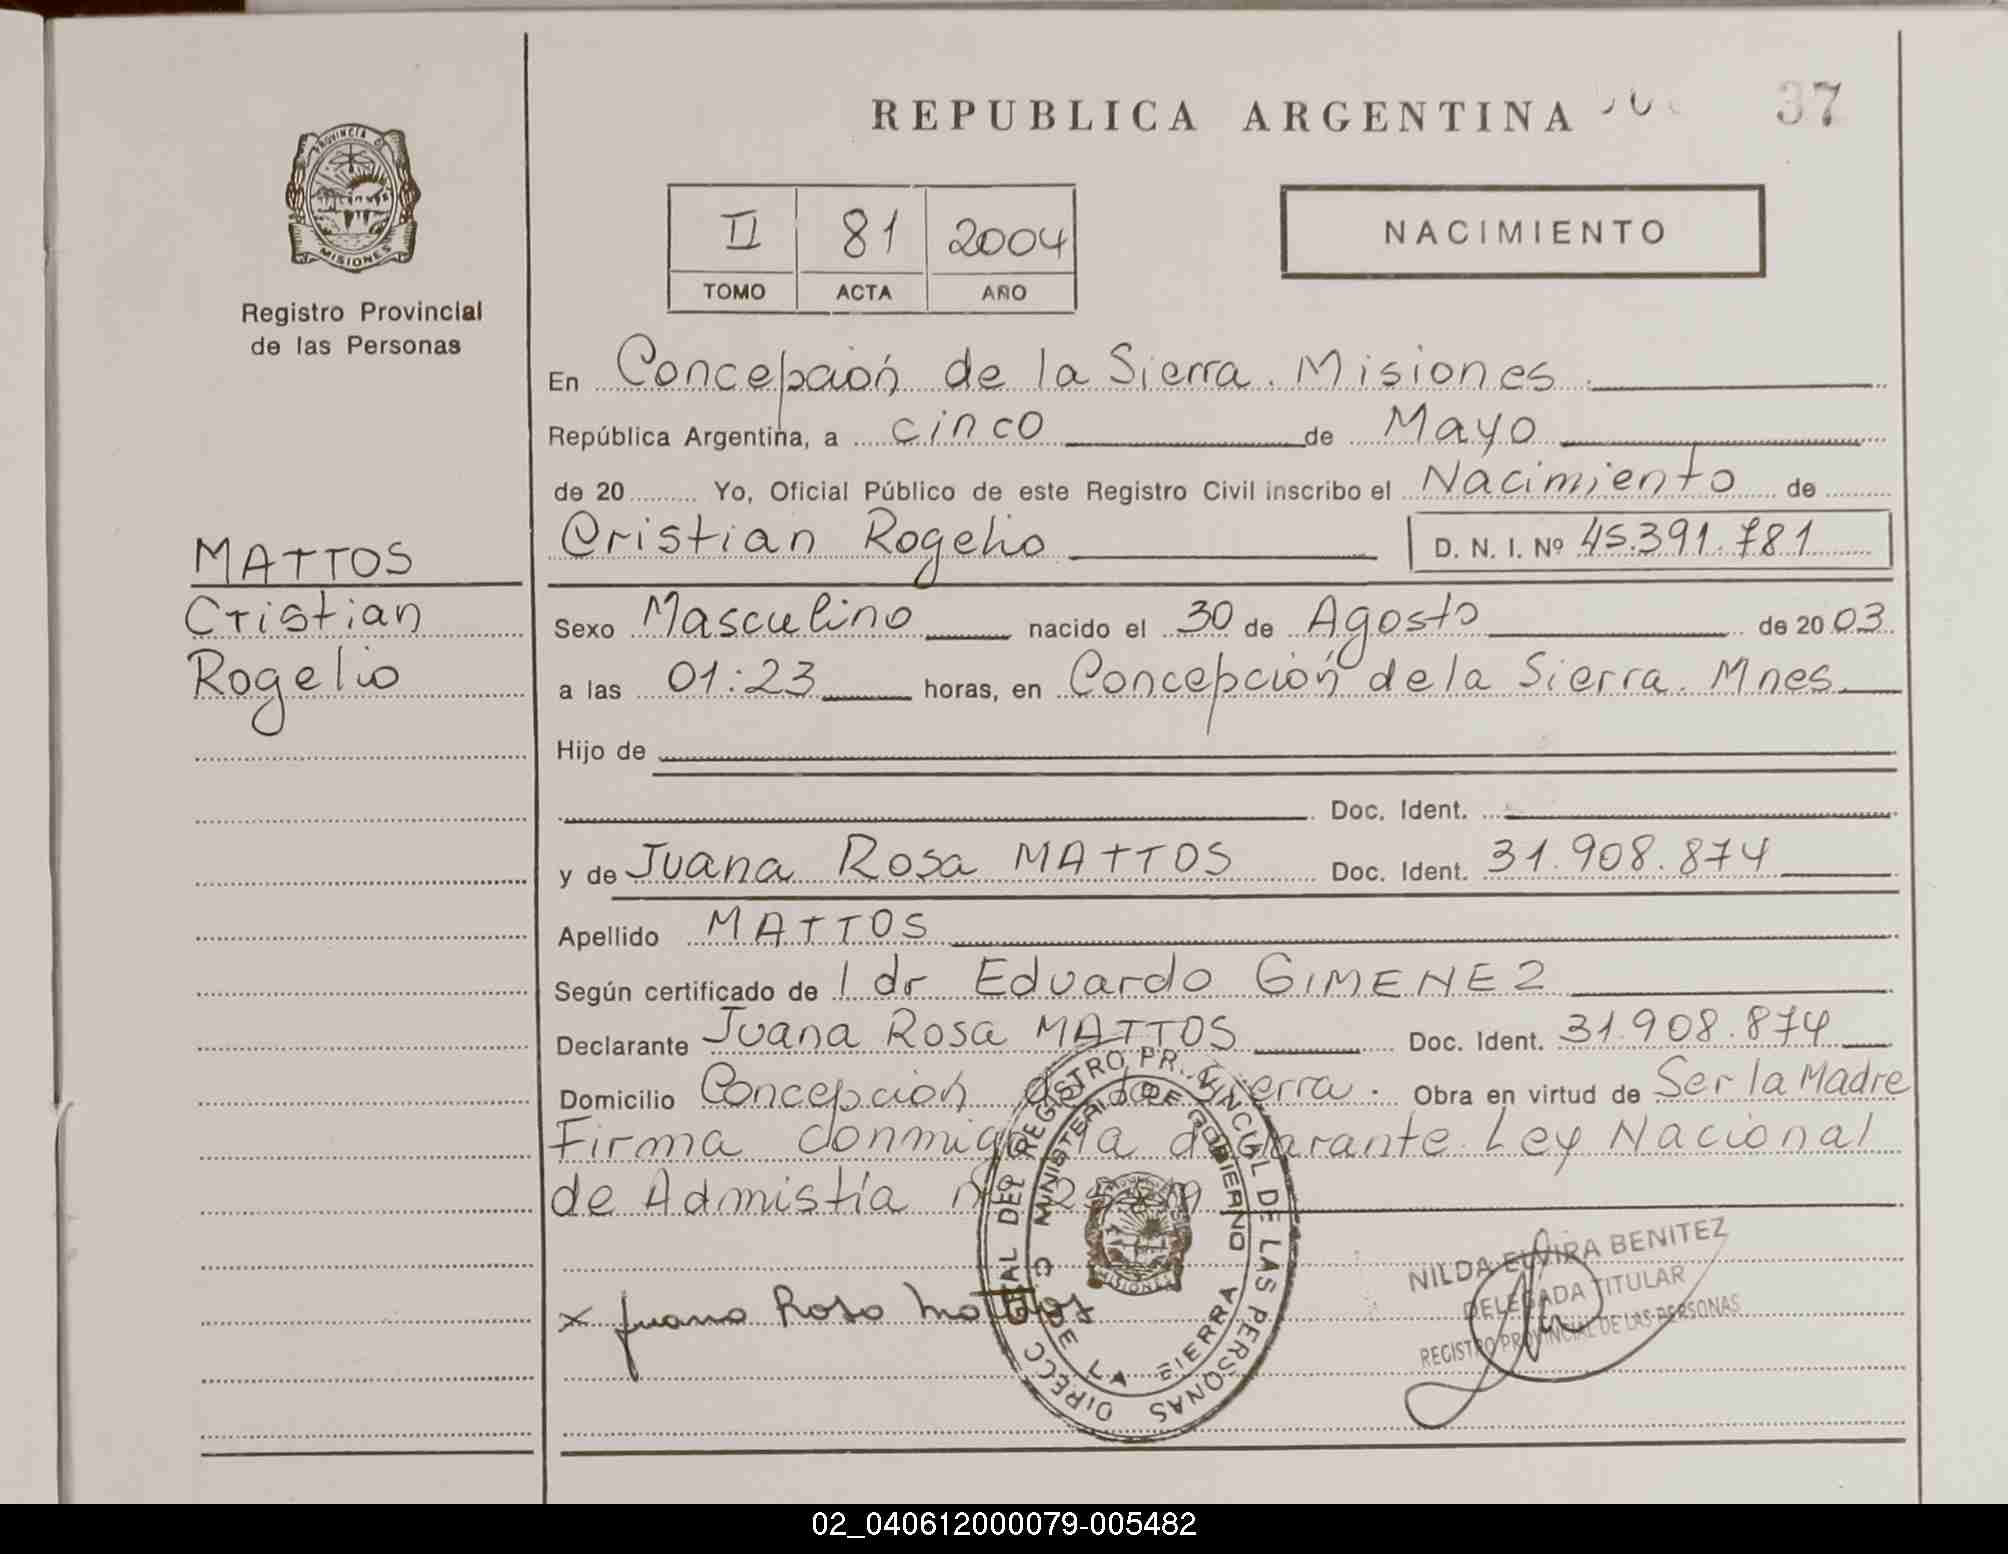 REPUBLICA ARGENTINA 37
PROVINCIA DE
MISIONES
Registro Provincial
de las Personas
II 81 2004
TOMO ACTA AÑO
NACIMIENTO
En Concepción de la Sierra. Misiones
República Argentina, a cinco de Mayo
de 20 Yo, Oficial Público de este Registro Civil inscribo el Nacimiento de
Cristian Rogelio D. N. I. Nº 45.391.781
MATTOS
Cristian
Rogelio
Sexo Masculino nacido el 30 de Agosto de 2003
a las 01:23 horas, en Concepción de la Sierra. Mnes
Hijo de
Doc. Ident.
y de Juana Rosa MATTOS Doc. Ident. 31.908.874
Apellido MATTOS
Según certificado de l dr Eduardo GIMENEZ
Declarante Juana Rosa MATTOS Doc. Ident. 31.908.874
Domicilio Concepción de la Sierra. Obra en virtud de Ser la Madre
Firma conmigo la declarante. Ley Nacional
de Admistía nº
x Juana Rosa Mattos
REGISTRO PROVINCIAL DE LAS PERSONAS
MINISTERIO DE GOBIERNO
DE LA SIERRA
MISIONES
NILDA ELVIRA BENITEZ
DELEGADA TITULAR
REGISTRO PROVINCIAL DE LAS PERSONAS
02_040612000079-005482